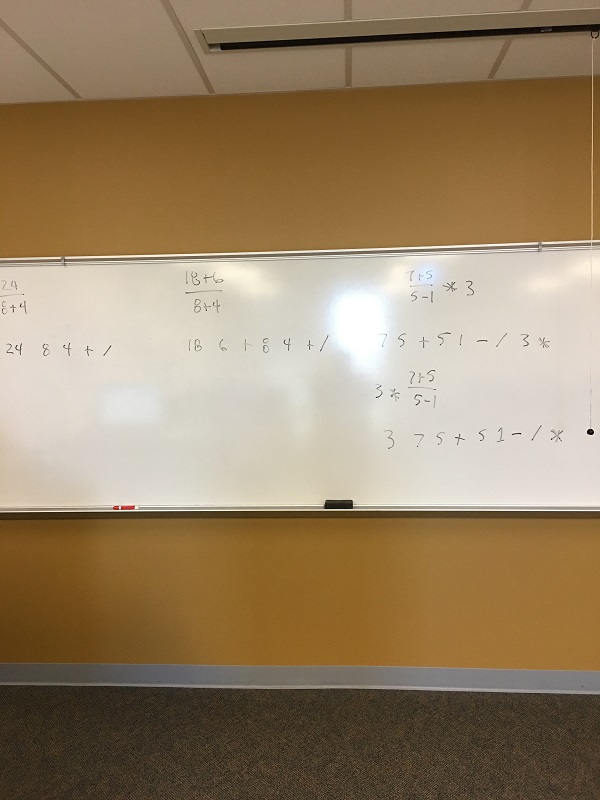 24
8+4
24 8 4 + /
18+6
8+4
18 6 + 8 4 + /
7+5
5-1 * 3
7 5 + 5 1 - / 3 *
7+5
3 * 5-1
3 7 5 + 5 1 - / *